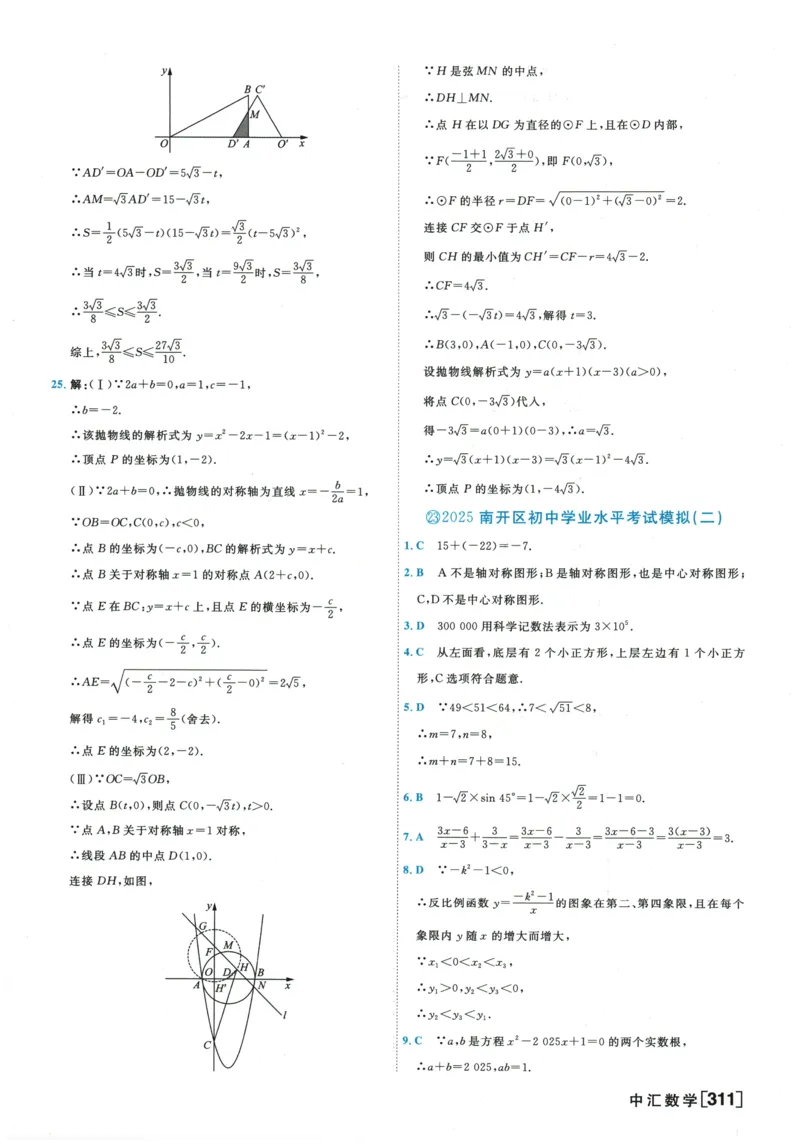 y
B C′
M
O D′ A O′ x
∵AD′=OA−OD′=5√3−t,
∴AM=√3AD′=15−√3t,
∴S=1/2(5√3−t)(15−√3t)=√3/2(t−5√3)²,
∴当 t=4√3时,S=3√3/2,当 t=9√3/2时,S=3√3/8,
∴3√3/8≤S≤3√3/2.
综上,3√3/8≤S≤27√3/10.
25.解:(Ⅰ)∵2a+b=0,a=1,c=−1,
∴b=−2.
∴该抛物线的解析式为 y=x²−2x−1=(x−1)²−2,
∴顶点 P 的坐标为(1,−2).
(Ⅱ)∵2a+b=0,∴抛物线的对称轴为直线 x=−b/2a=1,
∵OB=OC,C(0,c),c<0,
∴点 B 的坐标为(−c,0),BC 的解析式为 y=x+c.
∴点 B 关于对称轴 x=1 的对称点 A(2+c,0).
∵点 E 在 BC:y=x+c 上,且点 E 的横坐标为−c/2,
∴点 E 的坐标为(−c/2,c/2).
∴AE=√((−c/2−2−c)²+(c/2−0)²)=2√5,
解得 c₁=−4,c₂=8/5(舍去).
∴点 E 的坐标为(2,−2).
(Ⅲ)∵OC=√3OB,
∴设点 B(t,0),则点 C(0,−√3t),t>0.
∵点 A,B 关于对称轴 x=1 对称,
∴线段 AB 的中点 D(1,0).
连接 DH,如图,
y
G
F M
O D H B
A H′ N x
l
C
∵H 是弦 MN 的中点,
∴DH⊥MN.
∴点 H 在以 DG 为直径的⊙F 上,且在⊙D 内部,
∵F(−1+1/2,2√3+0/2),即 F(0,√3),
∴⊙F 的半径 r=DF=√((0−1)²+(√3−0)²)=2.
连接 CF 交⊙F 于点 H′,
则 CH 的最小值为 CH′=CF−r=4√3−2.
∴CF=4√3.
∴√3−(−√3t)=4√3,解得 t=3.
∴B(3,0),A(−1,0),C(0,−3√3).
设抛物线解析式为 y=a(x+1)(x−3)(a>0),
将点 C(0,−3√3)代入,
得−3√3=a(0+1)(0−3),∴a=√3.
∴y=√3(x+1)(x−3)=√3(x−1)²−4√3.
∴顶点 P 的坐标为(1,−4√3).
㉓2025 南开区初中学业水平考试模拟(二)
1.C 15+(−22)=−7.
2.B A 不是轴对称图形;B 是轴对称图形,也是中心对称图形;
C,D 不是中心对称图形.
3.D 300 000 用科学记数法表示为 3×10⁵.
4.C 从左面看,底层有 2 个小正方形,上层左边有 1 个小正方
形,C 选项符合题意.
5.D ∵49<51<64,∴7<√51<8,
∴m=7,n=8,
∴m+n=7+8=15.
6.B 1−√2×sin 45°=1−√2×√2/2=1−1=0.
7.A 3x−6/x−3+3/3−x=3x−6/x−3−3/x−3=3x−6−3/x−3=3(x−3)/x−3=3.
8.D ∵−k²−1<0,
∴反比例函数 y=−k²−1/x的图象在第二、第四象限,且在每个
象限内 y 随 x 的增大而增大,
∵x₁<0<x₂<x₃,
∴y₁>0,y₂<y₃<0,
∴y₂<y₃<y₁.
9.C ∵a,b 是方程 x²−2 025x+1=0 的两个实数根,
∴a+b=2 025,ab=1.
中汇数学[311]